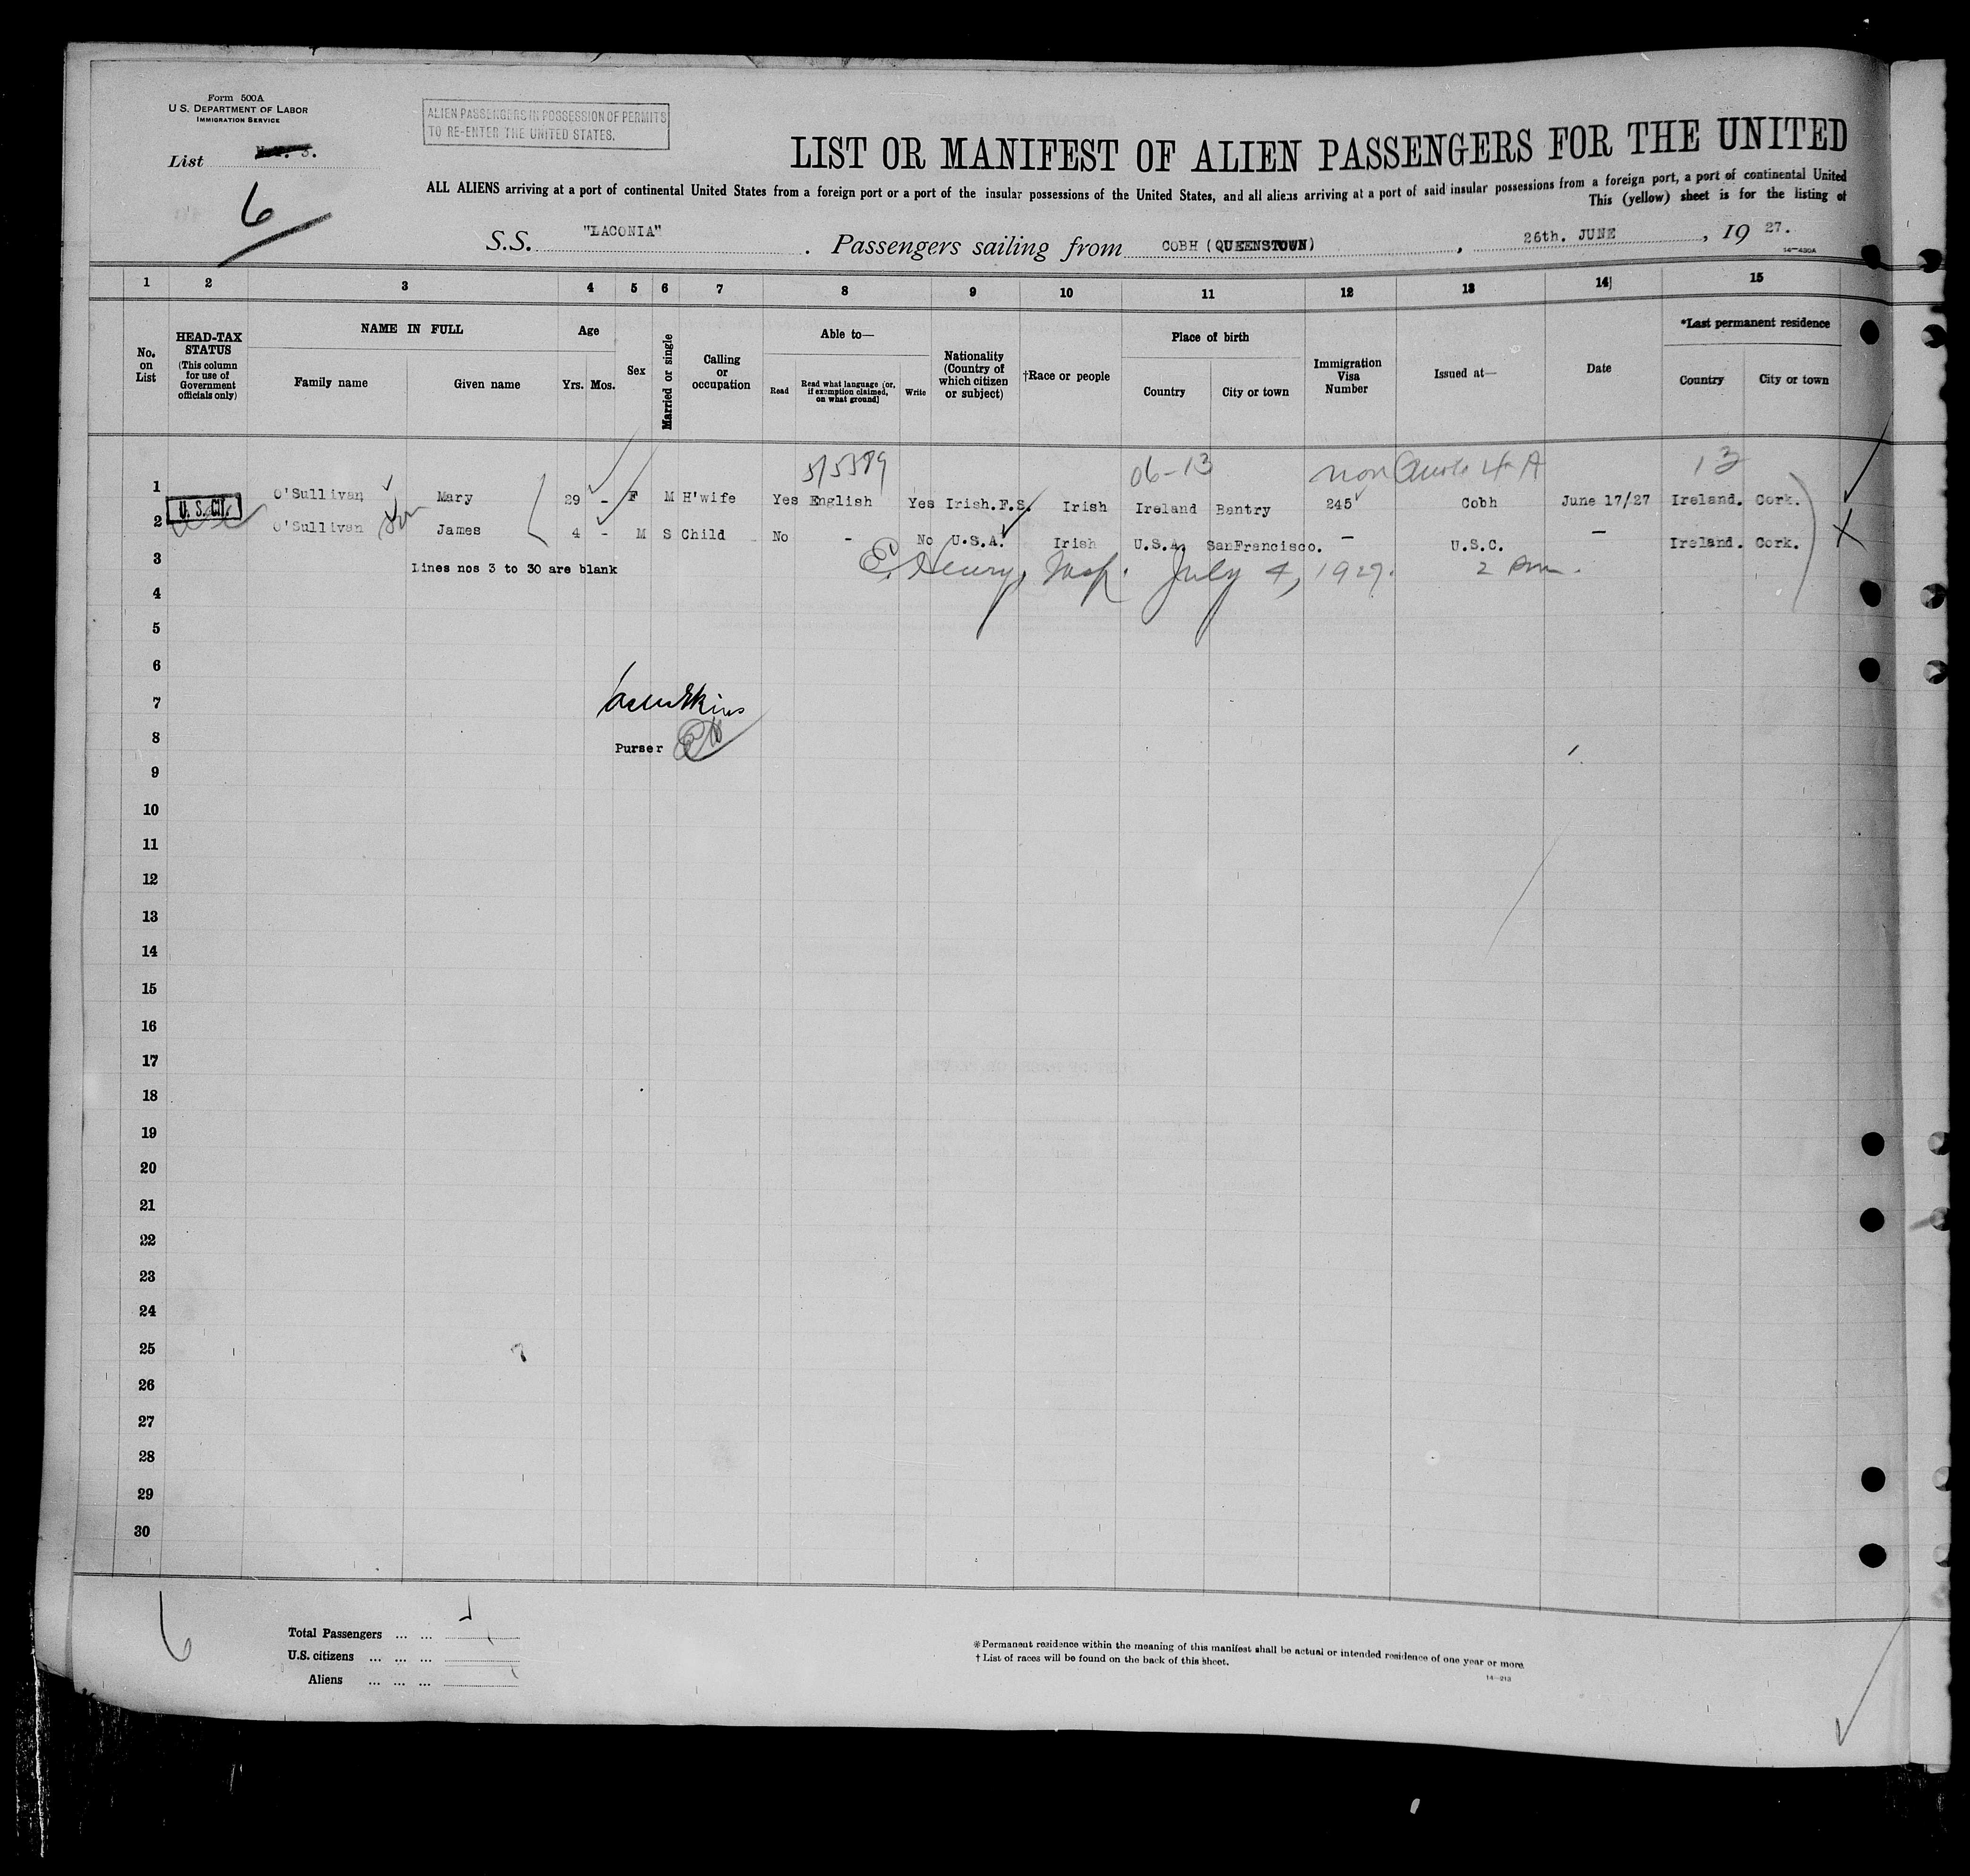 Form 500A
U. S. DEPARTMENT OF LABOR
IMMIGRATION SERVICE
List
6
ALIEN PASSENGERS IN POSSESSION OF PERMITS
TO RE-ENTER THE UNITED STATES.
LIST OR MANIFEST OF ALIEN PASSENGERS FOR THE UNITED
ALL ALIENS arriving at a port of continental United States from a foreign port or a port of the insular possessions of the United States, and all aliens arriving at a port of said insular possessions from a foreign port, a port of continental United
This (yellow) sheet is for the listing of
S.S. "LACONIA". Passengers sailing from COBH (QUEENSTOWN), 26th. JUNE, 19 27.
14—430A
1 2 3 4 5 6 7 8 9 10 11 12 13 14 15
No. on List
HEAD-TAX STATUS
(This column for use of Government officials only)
NAME IN FULL
Family name Given name
Age
Yrs. Mos.
Sex
Married or single
Calling or occupation
Able to—
Read Read what language [or, if exemption claimed, on what ground] Write
Nationality (Country of which citizen or subject)
†Race or people
Place of birth
Country City or town
Immigration Visa Number
Issued at—
Date
*Last permanent residence
Country City or town
06-13 non Quota 4 A 13
1 O'Sullivan Mary 29 - F M H'wife Yes English Yes Irish.F.S. Irish Ireland Bantry 245 Cobh June 17/27 Ireland. Cork.
U. S. CIT.
2 O'Sullivan James 4 - M S Child No - No U.S.A. Irish U.S.A. SanFrancisco. — U.S.C. — Ireland. Cork.
3 Lines nos 3 to 30 are blank E. Henry, Insp. July 4, 1927. 2 Pm.
4
5
6
7
8 Purser EH
9
10
11
12
13
14
15
16
17
18
19
20
21
22
23
24
25
26
27
28
29
30
6
Total Passengers ... ...
U.S. citizens ... ... ...
Aliens ... ... ...
*Permanent residence within the meaning of this manifest shall be actual or intended residence of one year or more
†List of races will be found on the back of this sheet.
14—213